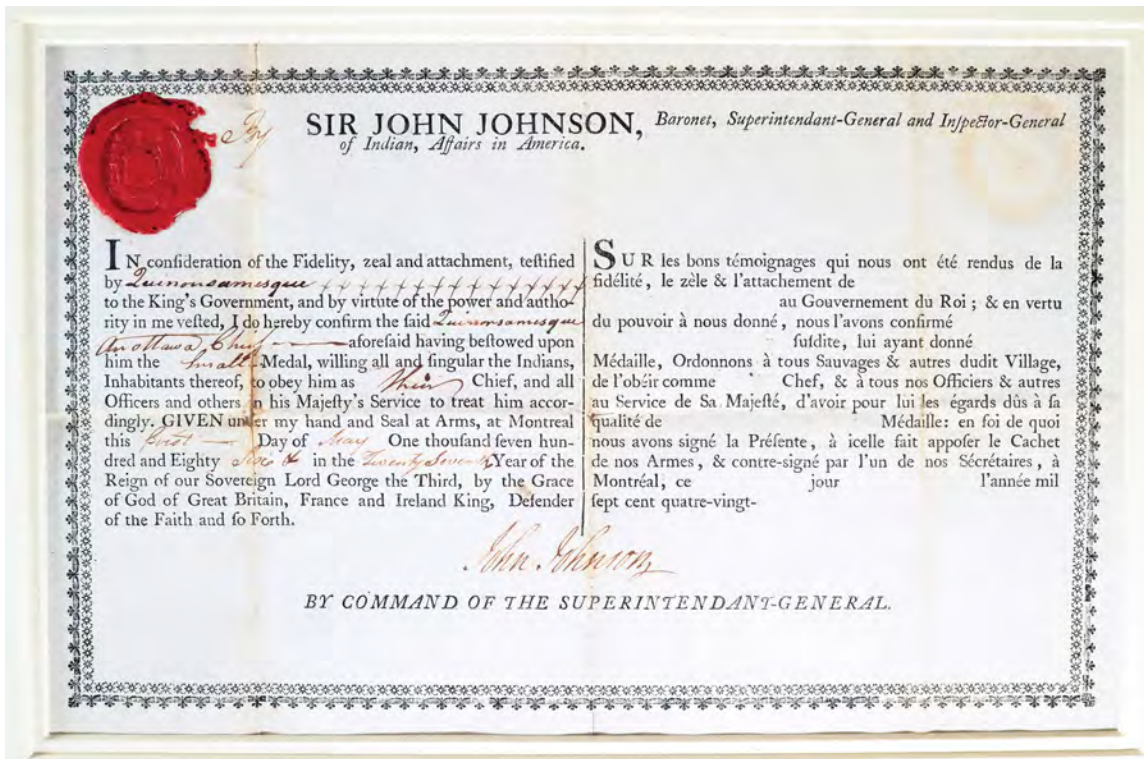 By
SIR JOHN JOHNSON, Baronet, Superintendant-General and Inſpector-General
of Indian, Affairs in America.
IN conſideration of the Fidelity, zeal and attachment, teſtified
by Quinonsamesque
to the King's Government, and by virtute of the power and autho-
rity in me veſted, I do hereby confirm the ſaid Quinonsamesque
An ottawa Chief aforeſaid having beſtowed upon
him the Small Medal, willing all and ſingular the Indians,
Inhabitants thereof, to obey him as Their Chief, and all
Officers and others in his Majeſty's Service to treat him accor-
dingly. GIVEN under my hand and Seal at Arms, at Montreal
this first Day of May One thouſand ſeven hun-
dred and Eighty Six & in the Twenty Seventh Year of the
Reign of our Sovereign Lord George the Third, by the Grace
of God of Great Britain, France and Ireland King, Defender
of the Faith and ſo Forth.
SUR les bons témoignages qui nous ont été rendus de la
fidélité, le zèle & l'attachement de
au Gouvernement du Roi ; & en vertu
du pouvoir à nous donné, nous l'avons confirmé
ſuſdite, lui ayant donné
Médaille, Ordonnons à tous Sauvages & autres dudit Village,
de l'obéir comme Chef, & à tous nos Officiers & autres
au Service de Sa Majeſté, d'avoir pour lui les égards dûs à ſa
qualité de Médaille: en foi de quoi
nous avons ſigné la Préſente, à icelle fait appoſer le Cachet
de nos Armes, & contre-ſigné par l'un de nos Sécrétaires, à
Montréal, ce jour l'année mil
ſept cent quatre-vingt-
John Johnson
BY COMMAND OF THE SUPERINTENDANT-GENERAL.